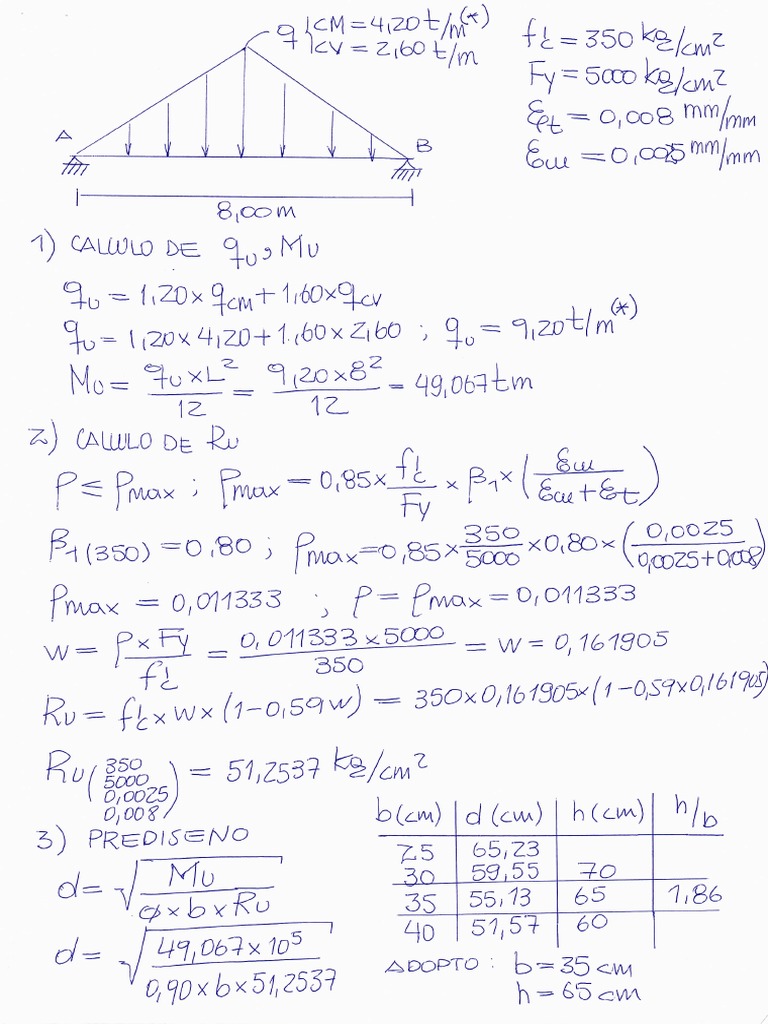 q { CM = 4,20 t/m(*)
CV = 2,60 t/m
f'c = 350 kg/cm2
Fy = 5000 kg/cm2
εt = 0,008 mm/mm
εcu = 0,0025 mm/mm
A
B
8,00m
1) CALCULO DE qu, Mu
qu = 1,20 x qCM + 1,60 x qCV
qu = 1,20 x 4,20 + 1,60 x 2,60 ; qu = 9,20 t/m(*)
Mu = qu x L² / 12 = 9,20 x 8² / 12 = 49,067 tm
2) CALCULO DE Ru
ρ ≤ ρmax ; ρmax = 0,85 x f'c/Fy x β1 x (εcu / εcu + εt)
β1(350) = 0,80 ; ρmax = 0,85 x 350/5000 x 0,80 x (0,0025 / 0,0025 + 0,008)
ρmax = 0,011333 ; ρ = ρmax = 0,011333
w = ρ x Fy / f'c = 0,011333 x 5000 / 350 = w = 0,161905
Ru = f'c x w x (1 - 0,59 w) = 350 x 0,161905 x (1 - 0,59 x 0,161905)
Ru (350 5000 0,0025 0,008) = 51,2537 kg/cm²
3) PREDISENO
d = √ Mu / ø x b x Ru
d = √ 49,067 x 10⁵ / 0,90 x b x 51,2537
b (cm) d (cm) h (cm) h/b
25 65,23
30 59,55 70
35 55,13 65 1,86
40 51,57 60
ADOPTO : b = 35 cm
h = 65 cm